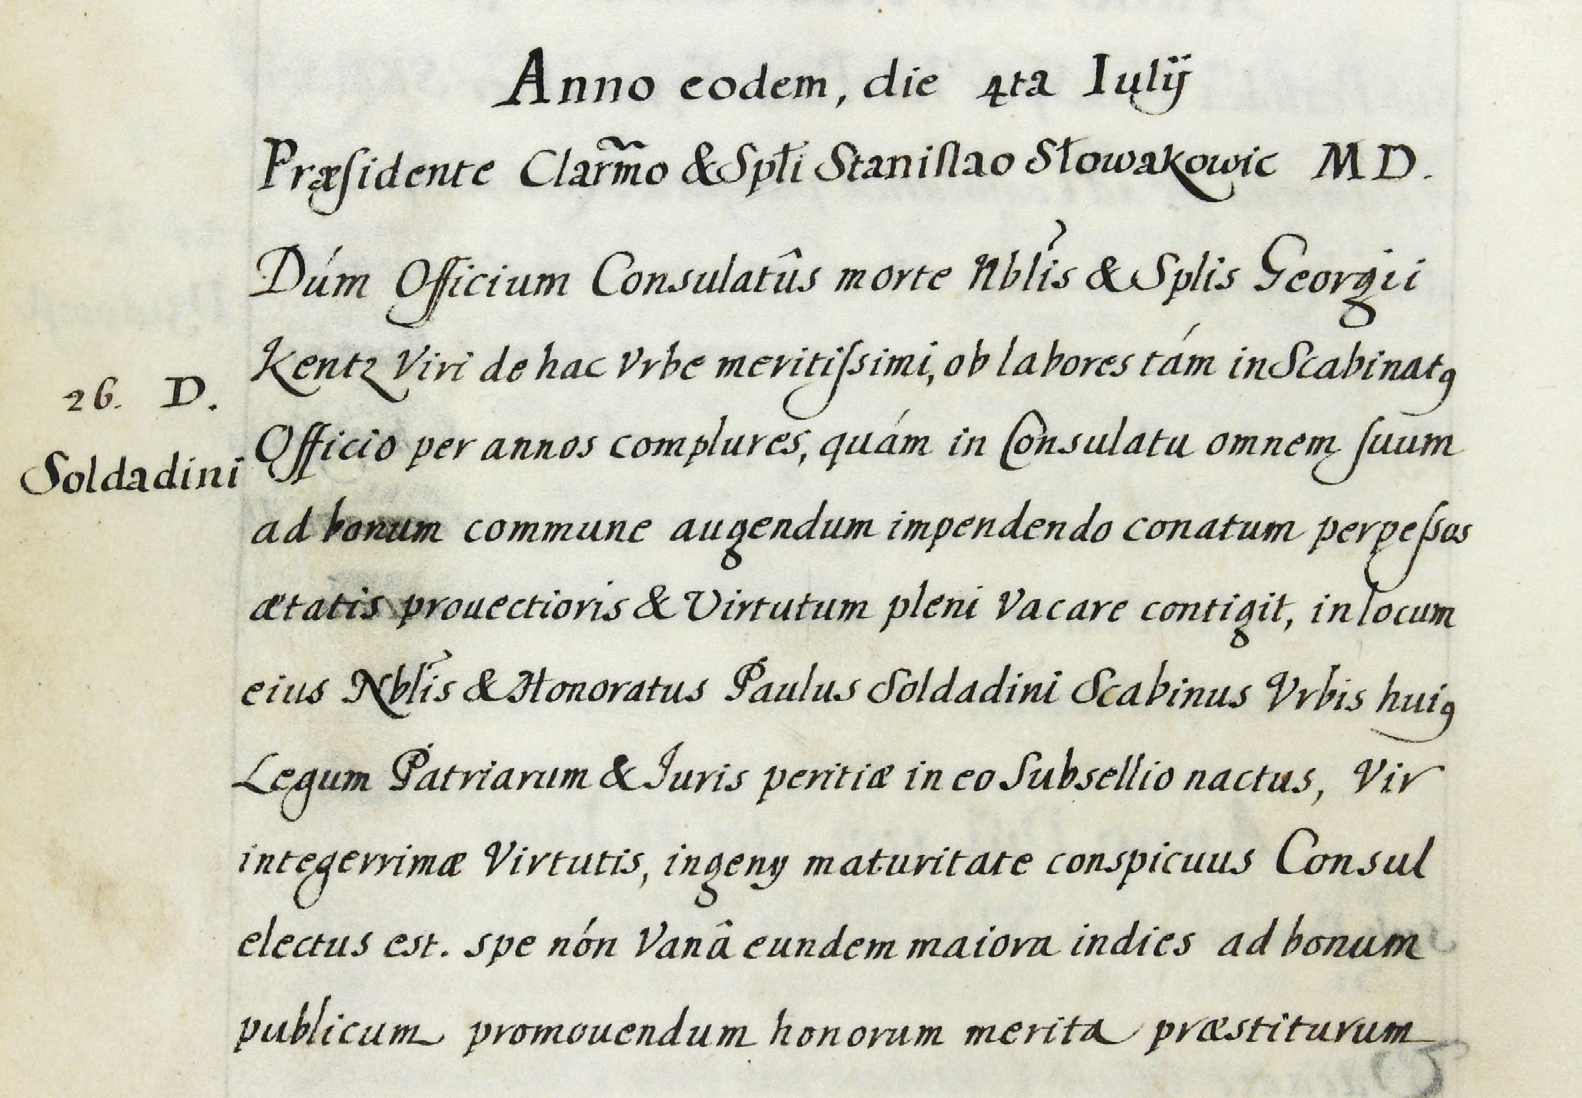 Anno eodem, die 4ta Iulij
Præſidente Clarmo & Spłi Stanislao Słowakowic MD.
Dúm Officium Consulatûs morte Nblis & Splis Georgii
26. D.
Kentz Viri de hac Vrbe meritiſsimi, ob labores tám in Scabinatꝯ
Soldadini
Officio per annos complures, quám in Consulatu omnem ſuum
ad bonum commune augendum impendendo conatum perpeſsos
ætatis prouectioris & Virtutum pleni Vacare contigit, in locum
eius Nblis & Honoratus Paulus Soldadini Scabinus Vrbis huiꝯ
Legum Patriarum & Iuris peritiæ in eo Subsellio nactus, Vir
integerrimæ Virtutis, ingeny maturitate conspicuus Consul
electus est. spe nón Vanâ eundem maiora indies ad bonum
publicum promouendum honorum merita præstiturum